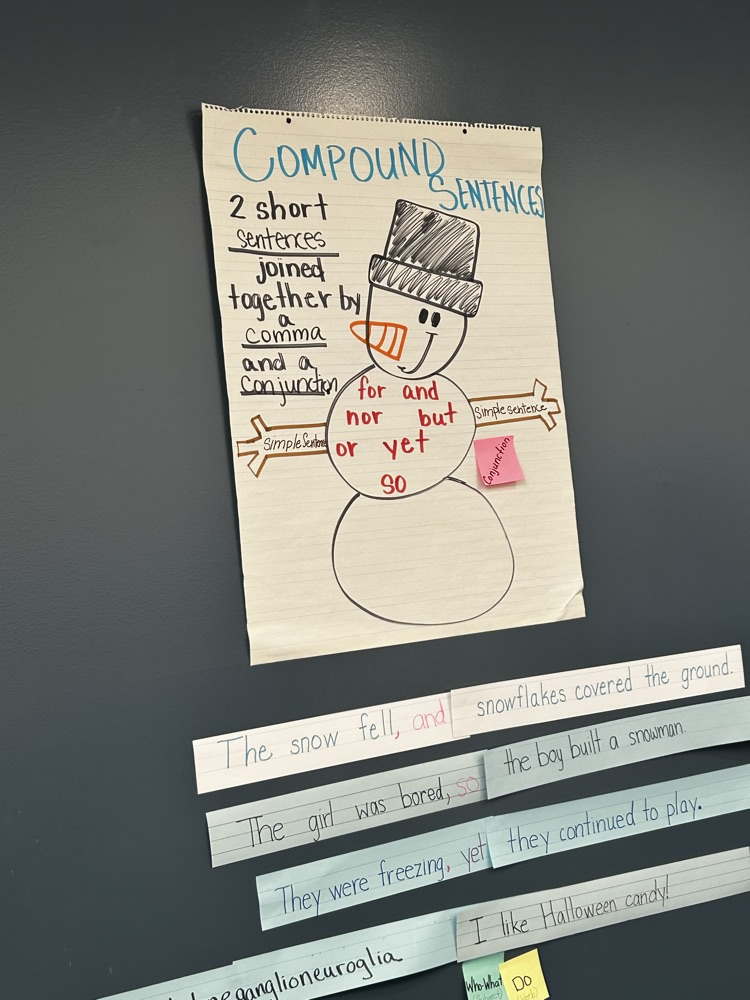 COMPOUND
SENTENCES
2 short
sentences
joined
together by
a
comma
and a
conjunction
for and
nor but
or yet
so
Simple Sentence
Simple sentence
Conjunction
The snow fell, and snowflakes covered the ground.
The girl was bored, so the boy built a snowman.
They were freezing, yet they continued to play.
I like Halloween candy!
Who-What Do